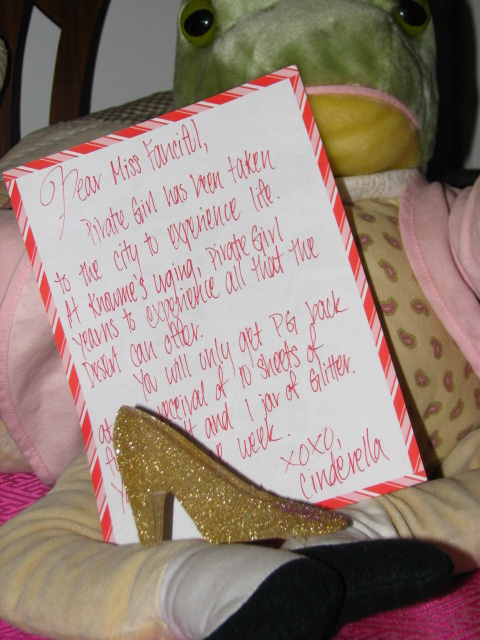 Dear Miss Fanciful,
Pirate Girl has been taken
to the city to experience life.
At Knownie's urging, Pirate Girl
yearns to experience all that the
District can offer.
You will only get PG back
at receival of 10 sheets of
and 1 jar of Glitter.
week.
XOXO,
Cinderella